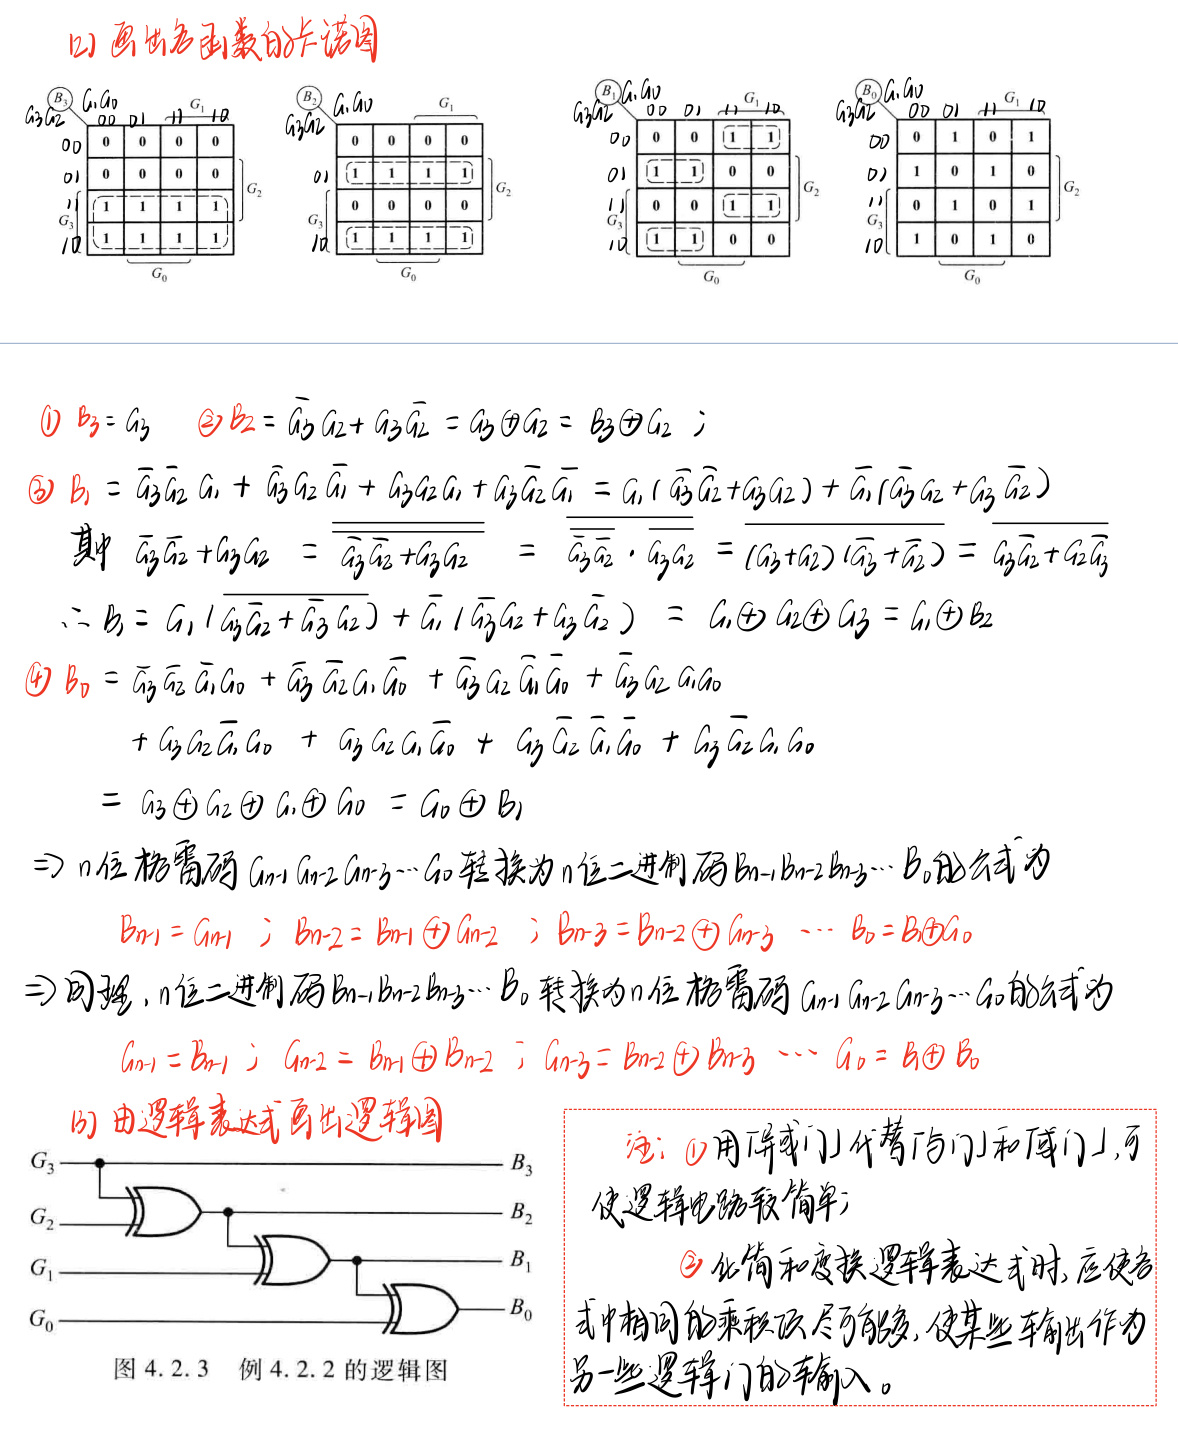 (2) 画出各函数的卡诺图
B₃ G₁G₀ G₁
G₃G₂ 00 01 11 10
00 0 0 0 0
01 0 0 0 0
11 1 1 1 1
10 1 1 1 1
G₃ G₂
G₀
B₂ G₁G₀ G₁
G₃G₂
0 0 0 0
01 1 1 1 1
0 0 0 0
10 1 1 1 1
G₃ G₂
G₀
B₁ G₁G₀ G₁
G₃G₂ 00 01 11 10
00 0 0 1 1
01 1 1 0 0
11 0 0 1 1
10 1 1 0 0
G₃ G₂
G₀
B₀ G₁G₀ G₁
G₃G₂ 00 01 11 10
00 0 1 0 1
01 1 0 1 0
11 0 1 0 1
10 1 0 1 0
G₃ G₂
G₀
① B₃ = G₃ ② B₂ = G̅₃G₂ + G₃G̅₂ = G₃⊕G₂ = B₃⊕G₂ ;
③ B₁ = G̅₃G̅₂G₁ + G̅₃G₂G̅₁ + G₃G₂G₁ + G₃G̅₂G̅₁ = G₁(G̅₃G̅₂+G₃G₂) + G̅₁(G̅₃G₂+G₃G̅₂)
其中 G̅₃G̅₂+G₃G₂ = \overline{\overline{G̅₃G̅₂+G₃G₂}} = \overline{\overline{G̅₃G̅₂}·\overline{G₃G₂}} = \overline{(G₃+G₂)(G̅₃+G̅₂)} = \overline{G₃G̅₂+G₂G̅₃}
∴ B₁ = G₁(\overline{G₃G̅₂+G̅₃G₂}) + G̅₁(G̅₃G₂+G₃G̅₂) = G₁⊕G₂⊕G₃ = G₁⊕B₂
④ B₀ = G̅₃G̅₂G̅₁G₀ + G̅₃G̅₂G₁G̅₀ + G̅₃G₂G̅₁G̅₀ + G̅₃G₂G₁G₀
+ G₃G₂G̅₁G₀ + G₃G₂G₁G̅₀ + G₃G̅₂G̅₁G̅₀ + G₃G̅₂G₁G₀
= G₃⊕G₂⊕G₁⊕G₀ = G₀⊕B₁
⇒ n位格雷码Gn-1Gn-2Gn-3…G₀转换为n位二进制码Bn-1Bn-2Bn-3…B₀的公式为
Bn-1=Gn-1 ; Bn-2=Bn-1⊕Gn-2 ; Bn-3=Bn-2⊕Gn-3 … B₀=B₁⊕G₀
⇒ 同理,n位二进制码Bn-1Bn-2Bn-3…B₀转换为n位格雷码Gn-1Gn-2Gn-3…G₀的公式为
Gn-1=Bn-1 ; Gn-2=Bn-1⊕Bn-2 ; Gn-3=Bn-2⊕Bn-3 … G₀=B₁⊕B₀
(3) 由逻辑表达式画出逻辑图
G₃ B₃
G₂ B₂
G₁ B₁
G₀ B₀
图 4.2.3 例 4.2.2 的逻辑图
注: ①用「异或门」代替「与门」和「或门」,可
使逻辑电路较简单;
②化简和变换逻辑表达式时,应使各
式中相同的乘积项尽可能多,使某些输出作为
另一些逻辑门的输入。